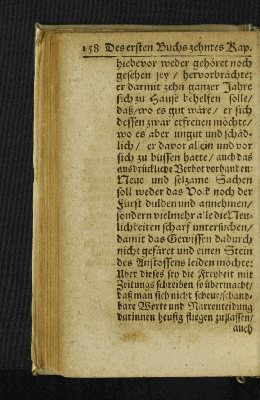 158 Des ersten Buchs zehntes Kap.
hiebevor weder gehöret noch
gesehen sey / hervorbrächte;
er darmit zehn ganzer Jahre
sich zu Hause behelfen solle /
daß / wo es gut wäre / er sich
dessen zwar erfreuen möchte /
wo es aber ungut und schäd-
lich / er davor allein und vor
sich zu büssen hätte / auch das
ausdrückliche Verbot vorhanden:
Neue und selzame Sachen
soll weder das Volk noch der
Fürst dulden und annehmen /
sondern vielmehr alle die Neu-
lichkeiten scharf untersuchen /
damit das Gewissen dadurch
nicht gefäret und einen Stein
des Anstossens leiden möchte:
Uber dieses sey die Freyheit mit
Zeitungs schreiben so übermacht /
daß man sich nicht scheue / schand-
bare Worte und Narrenteidung
darinnen heufig fliegen zu lassen /
auch